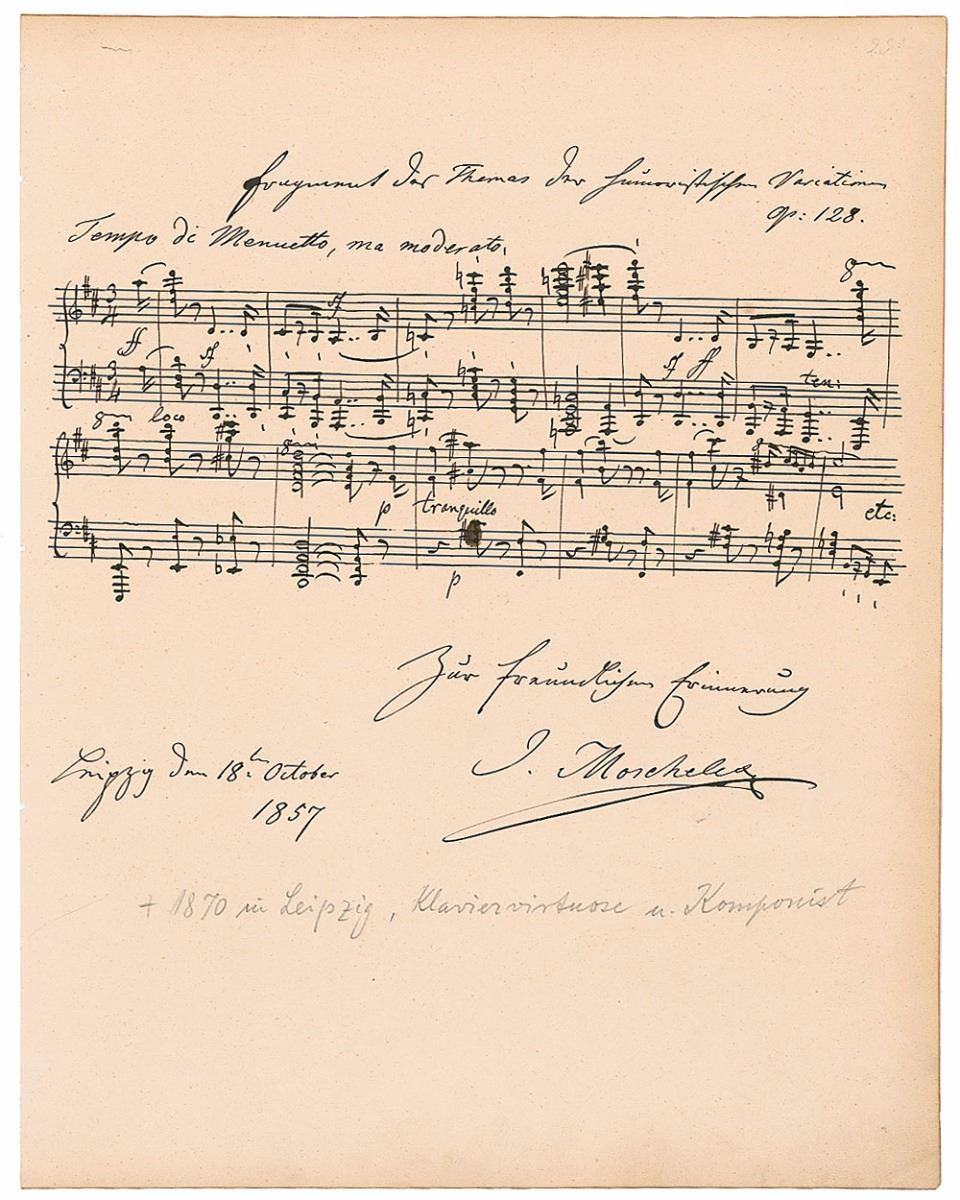 fragment des Themas der humoristischen Variationen
op: 128.
Tempo di Menuetto, ma moderato.
8
3 4
ff sf sf sf ff
3 4
ten:
8 loco
8
p tranquillo
etc:
p
Zur freundlichen Erinnerung
J. Moscheles
Leipzig den 18ten October
1857
† 1870 in Leipzig, Klaviervirtuose u. Komponist